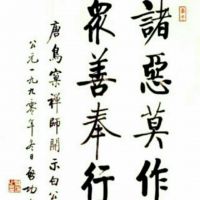 諸惡莫作
眾善奉行
唐鳥窠禪師開示白公
公元一九九零年冬日啟功